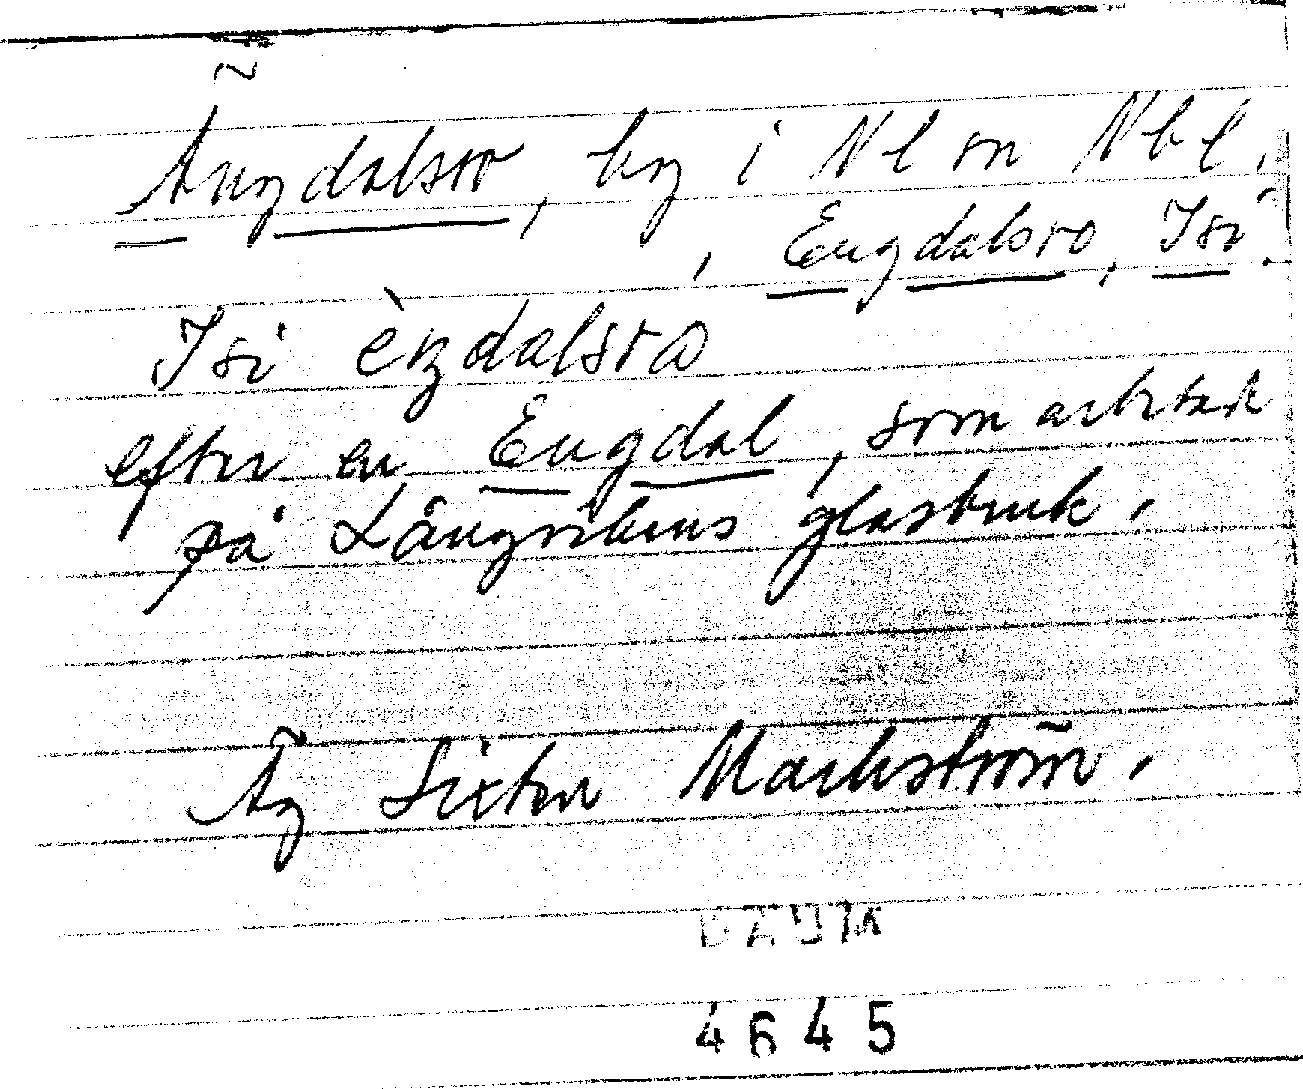 Ängdalsro, by i Nl om Nbl.
, Engdalsro, Isi.
Isi èŋdalsro
efter en Engdal, som arbetade
på Långvikens glasbruk.
Äg Sixten Markström.
DAUM
4645